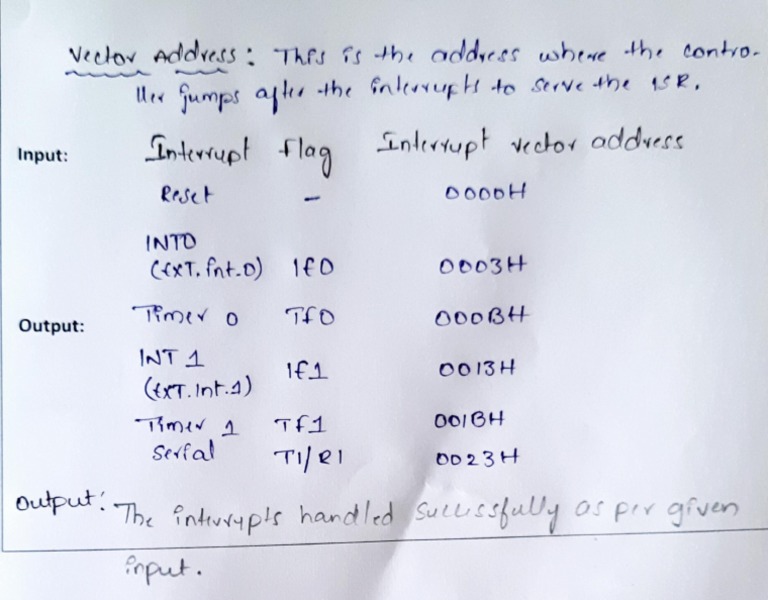 Vector Address: This is the address where the contro-
ller jumps after the interrupts to serve the ISR.
Input: Interrupt flag Interrupt vector address
Reset - 0000H
INT0
(EXT. int.0) IE0 0003H
Output: Timer 0 TF0 000BH
INT 1 IE1 0013H
(EXT. Int.1)
Timer 1 TF1 001BH
Serial TI/RI 0023H
Output: The interrupts handled successfully as per given
input.